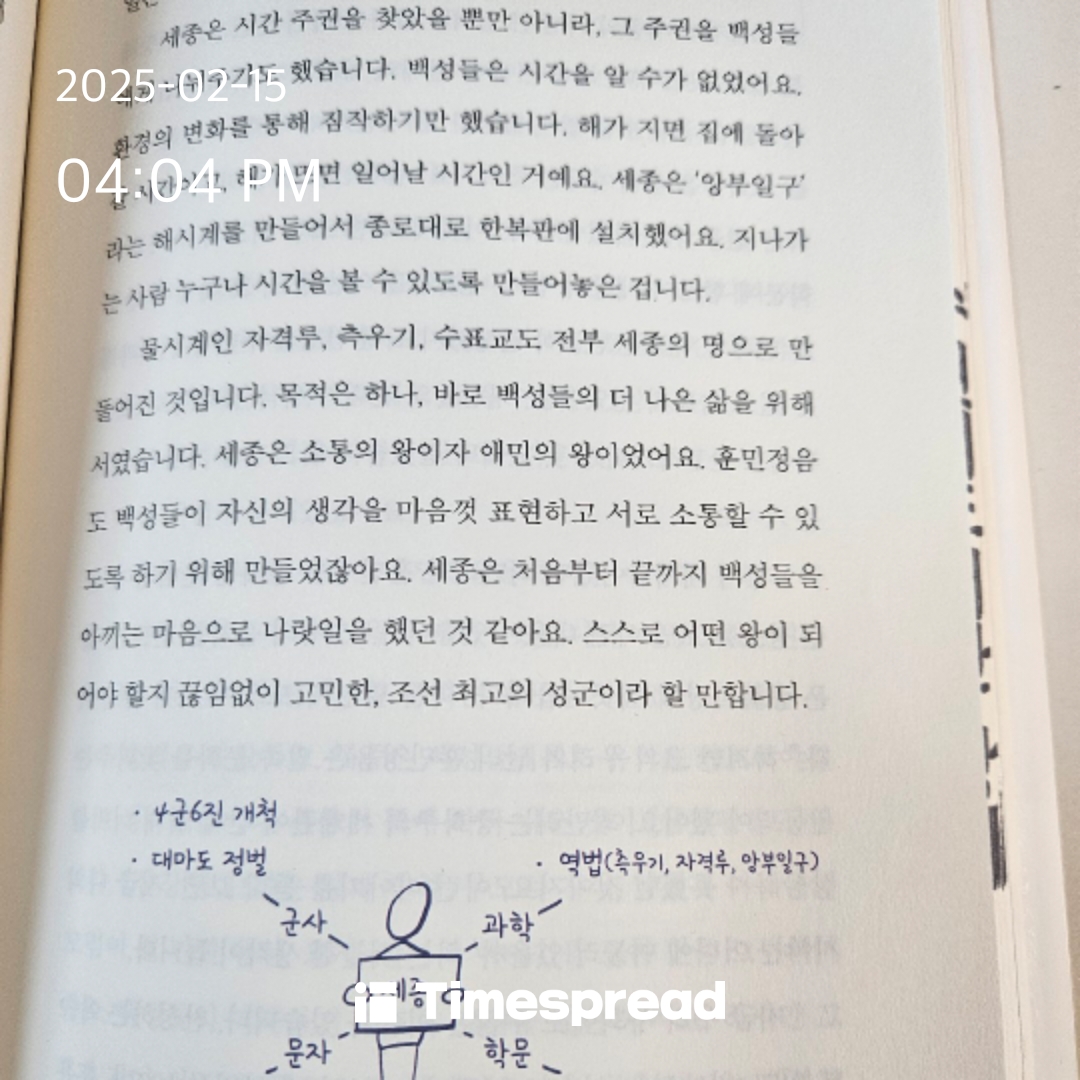 세종은 시간 주권을 찾았을 뿐만 아니라, 그 주권을 백성들
2025-02-15
했습니다. 백성들은 시간을 알 수가 없었어요.
환경의 변화를 통해 짐작하기만 했습니다. 해가 지면 집에 돌아
04:04 PM
일어날 시간인 거예요. 세종은 '앙부일구'
라는 해시계를 만들어서 종로대로 한복판에 설치했어요. 지나가
는 사람 누구나 시간을 볼 수 있도록 만들어놓은 겁니다.
물시계인 자격루, 측우기, 수표교도 전부 세종의 명으로 만
들어진 것입니다. 목적은 하나, 바로 백성들의 더 나은 삶을 위해
서였습니다. 세종은 소통의 왕이자 애민의 왕이었어요. 훈민정음
도 백성들이 자신의 생각을 마음껏 표현하고 서로 소통할 수 있
도록 하기 위해 만들었잖아요. 세종은 처음부터 끝까지 백성들을
아끼는 마음으로 나랏일을 했던 것 같아요. 스스로 어떤 왕이 되
어야 할지 끊임없이 고민한, 조선 최고의 성군이라 할 만합니다.
· 4군6진 개척
· 대마도 정벌
· 역법(측우기, 자격루, 앙부일구)
군사
과학
세종
Timespread
문자
학문